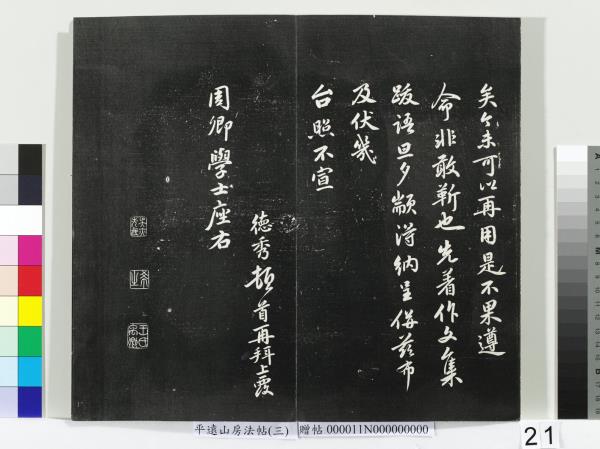 矣今未可以再用是不果遵
命非敢靳也先著作文集
跋语旦夕颛得纳呈併兹布
及伏幾
台照不宣
德秀頓首再拜上覆
周卿學士座右
平遠山房法帖(三)
贈帖 000011N000000000
21